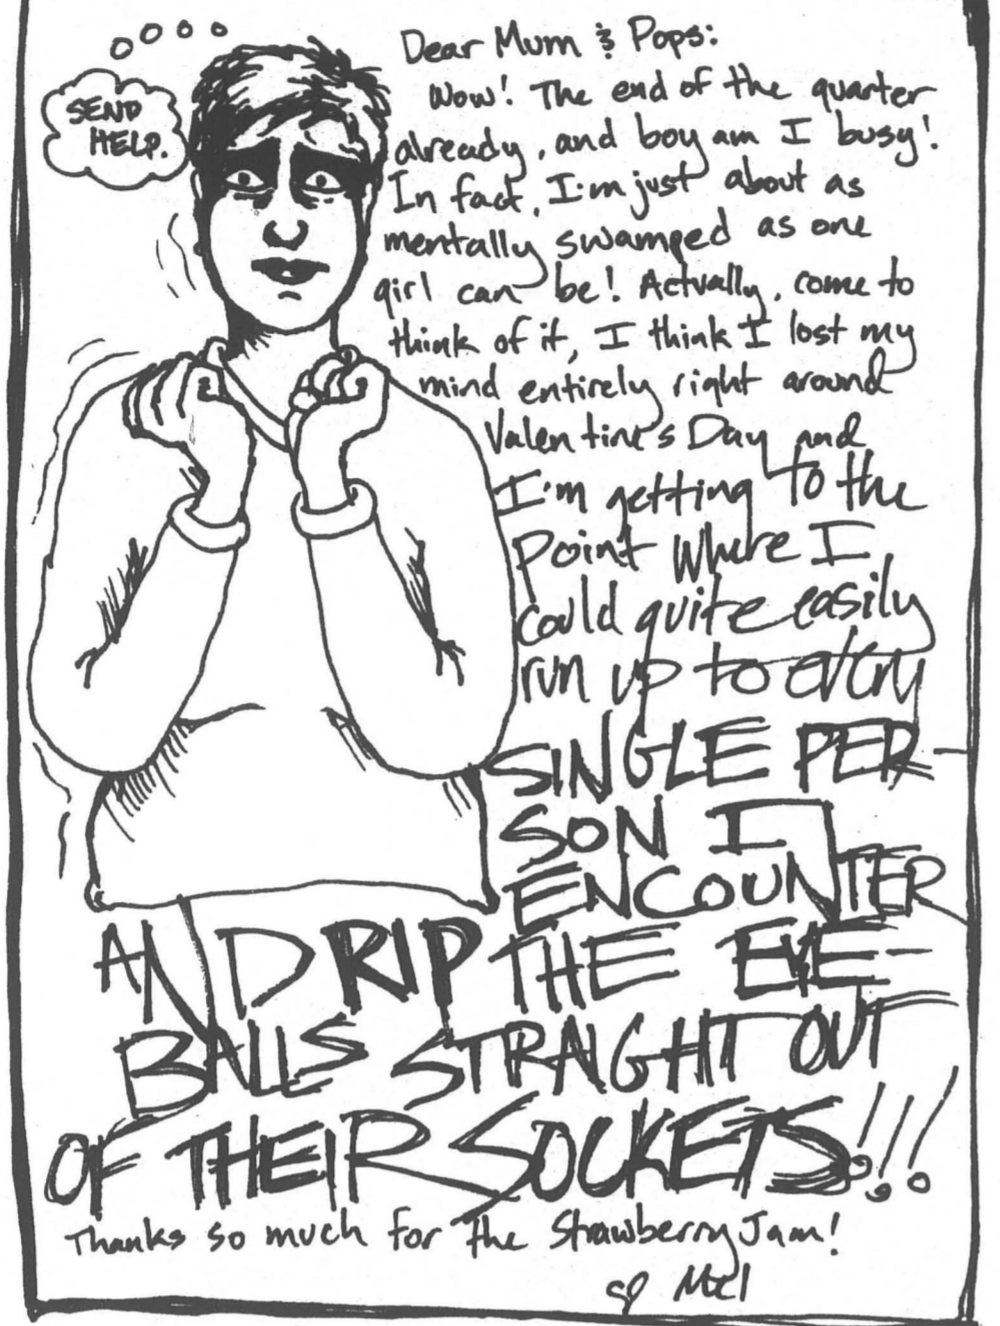 SEND
HELP.
Dear Mum & Pops:
Wow! The end of the quarter
already, and boy am I busy!
In fact, I'm just about as
mentally swamped as one
girl can be! Actually, come to
think of it, I think I lost my
mind entirely right around
Valentine's Day and
I'm getting to the
Point where I
could quite easily
run up to every
SINGLE PER
SON I
ENCOUNTER
AND RIP THE EYE
BALLS STRAIGHT OUT
OF THEIR SOCKETS!!!
Thanks so much for the Strawberry Jam!
♡ Mel